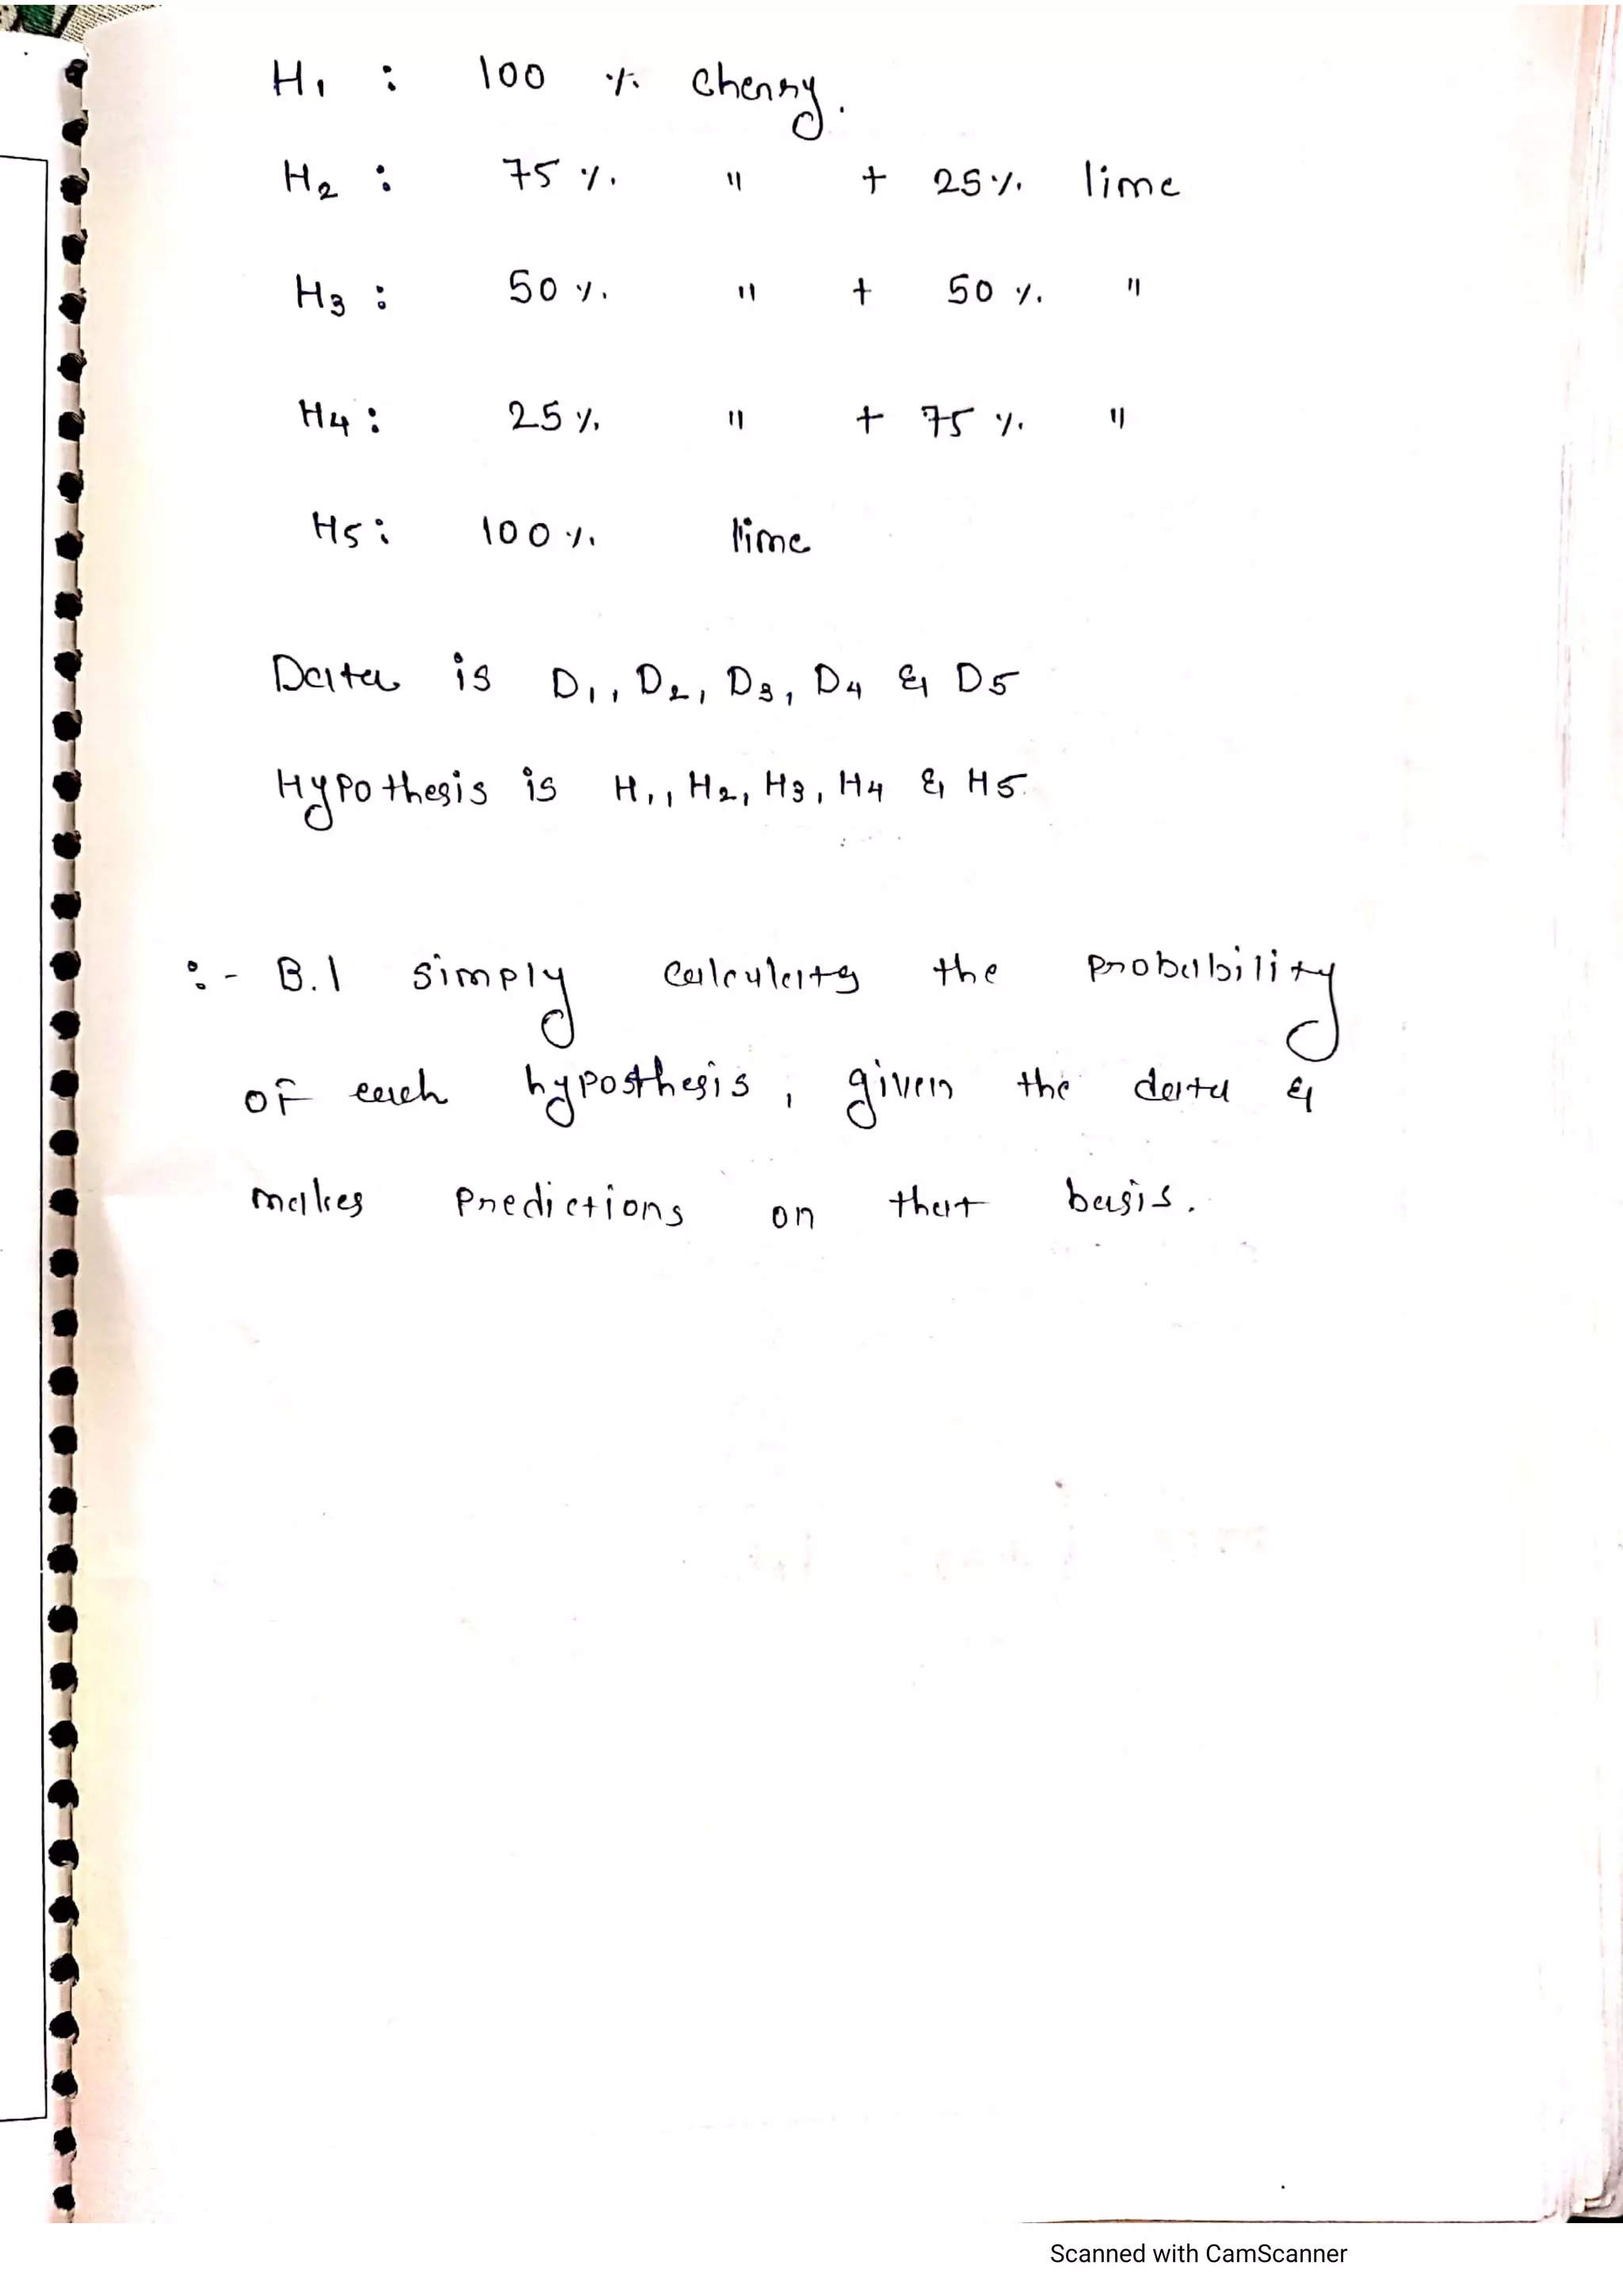 H1 : 100 % cherry.
H2 : 75 % " + 25 % lime
H3 : 50 % " + 50 % "
H4 : 25 % " + 75 % "
H5 : 100 % lime
Data is D1, D2, D3, D4 & D5
Hypothesis is H1, H2, H3, H4 & H5.
:- B.l simply calculates the probability
of each hyposthesis, given the data &
makes predictions on that basis.
Scanned with CamScanner